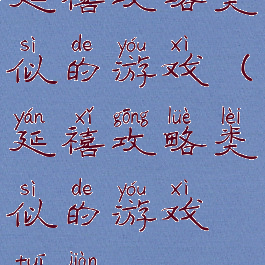 延禧攻略类
sì de yóu xì
似的游戏（
yán xǐ gōng lüè lèi
延禧攻略类
sì de yóu xì
似的游戏
tuī jiàn